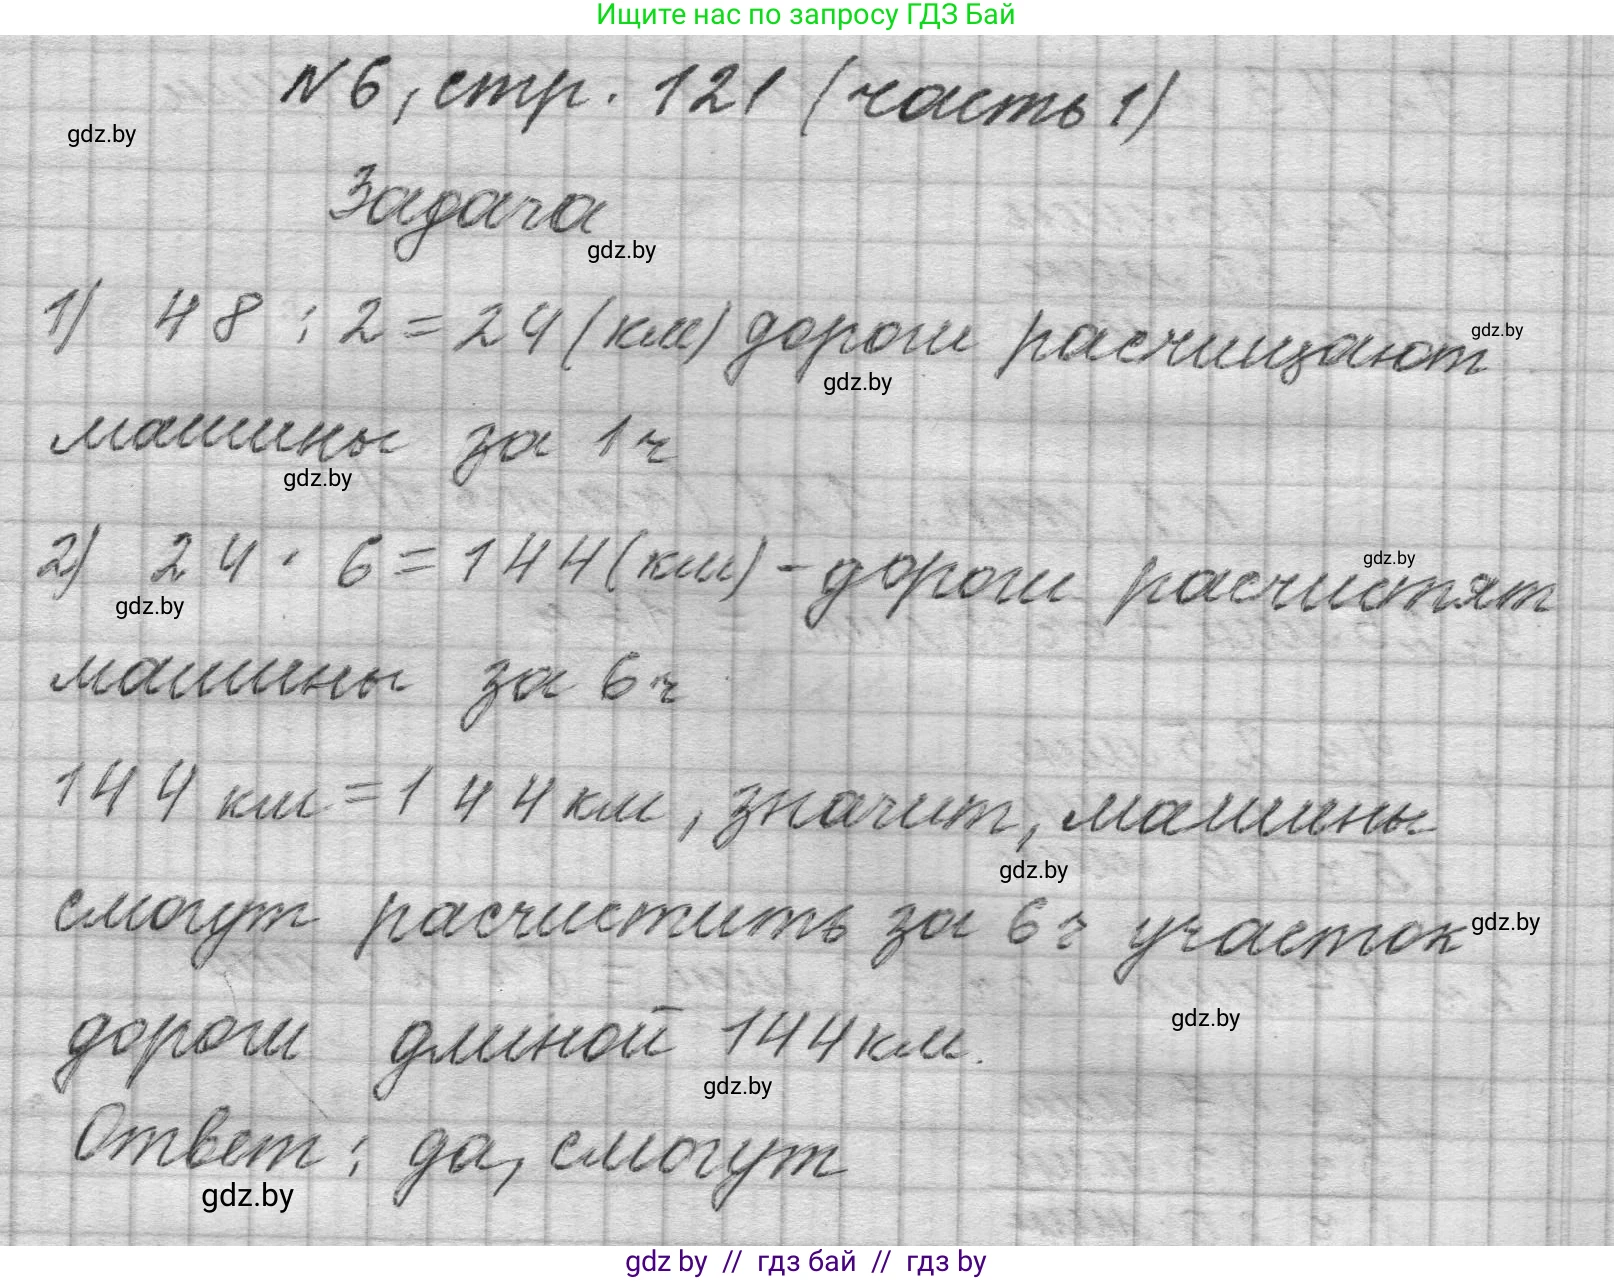 Ищите нас по запросу ГДЗ Бай
№6, стр. 121 (часть 1)
gdz.by
Задача
gdz.by
1) 48 : 2 = 24 (км) дороги расчищают
gdz.by
gdz.by
машины за 1 ч
gdz.by
2) 24 · 6 = 144 (км) - дороги расчистят
gdz.by
gdz.by
машины за 6 ч
144 км = 144 км, значит, машины
gdz.by
смогут расчистить за 6 ч участок
gdz.by
gdz.by
дороги длиной 144 км.
gdz.by
Ответ: да, смогут
gdz.by
gdz by // гдз бай // гдз by